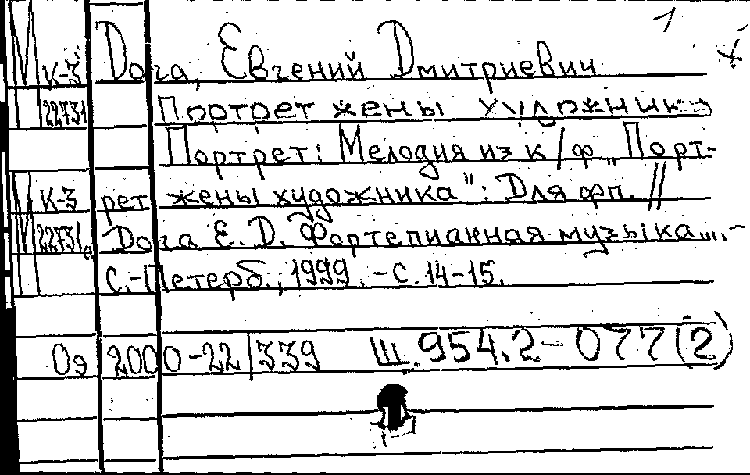 1
М к-3 Дога, Евгений Дмитриевич
22731 Портрет жены художника
Портрет: Мелодия из к/ф „Порт-
М к-3 рет жены художника": Для фп. //
22731а Дога Е. Д. Фортепианная музыка... -
С.-Петерб., 1999. - С. 14-15.
Оэ 2000-22/339 Ш.954.2-077(2)